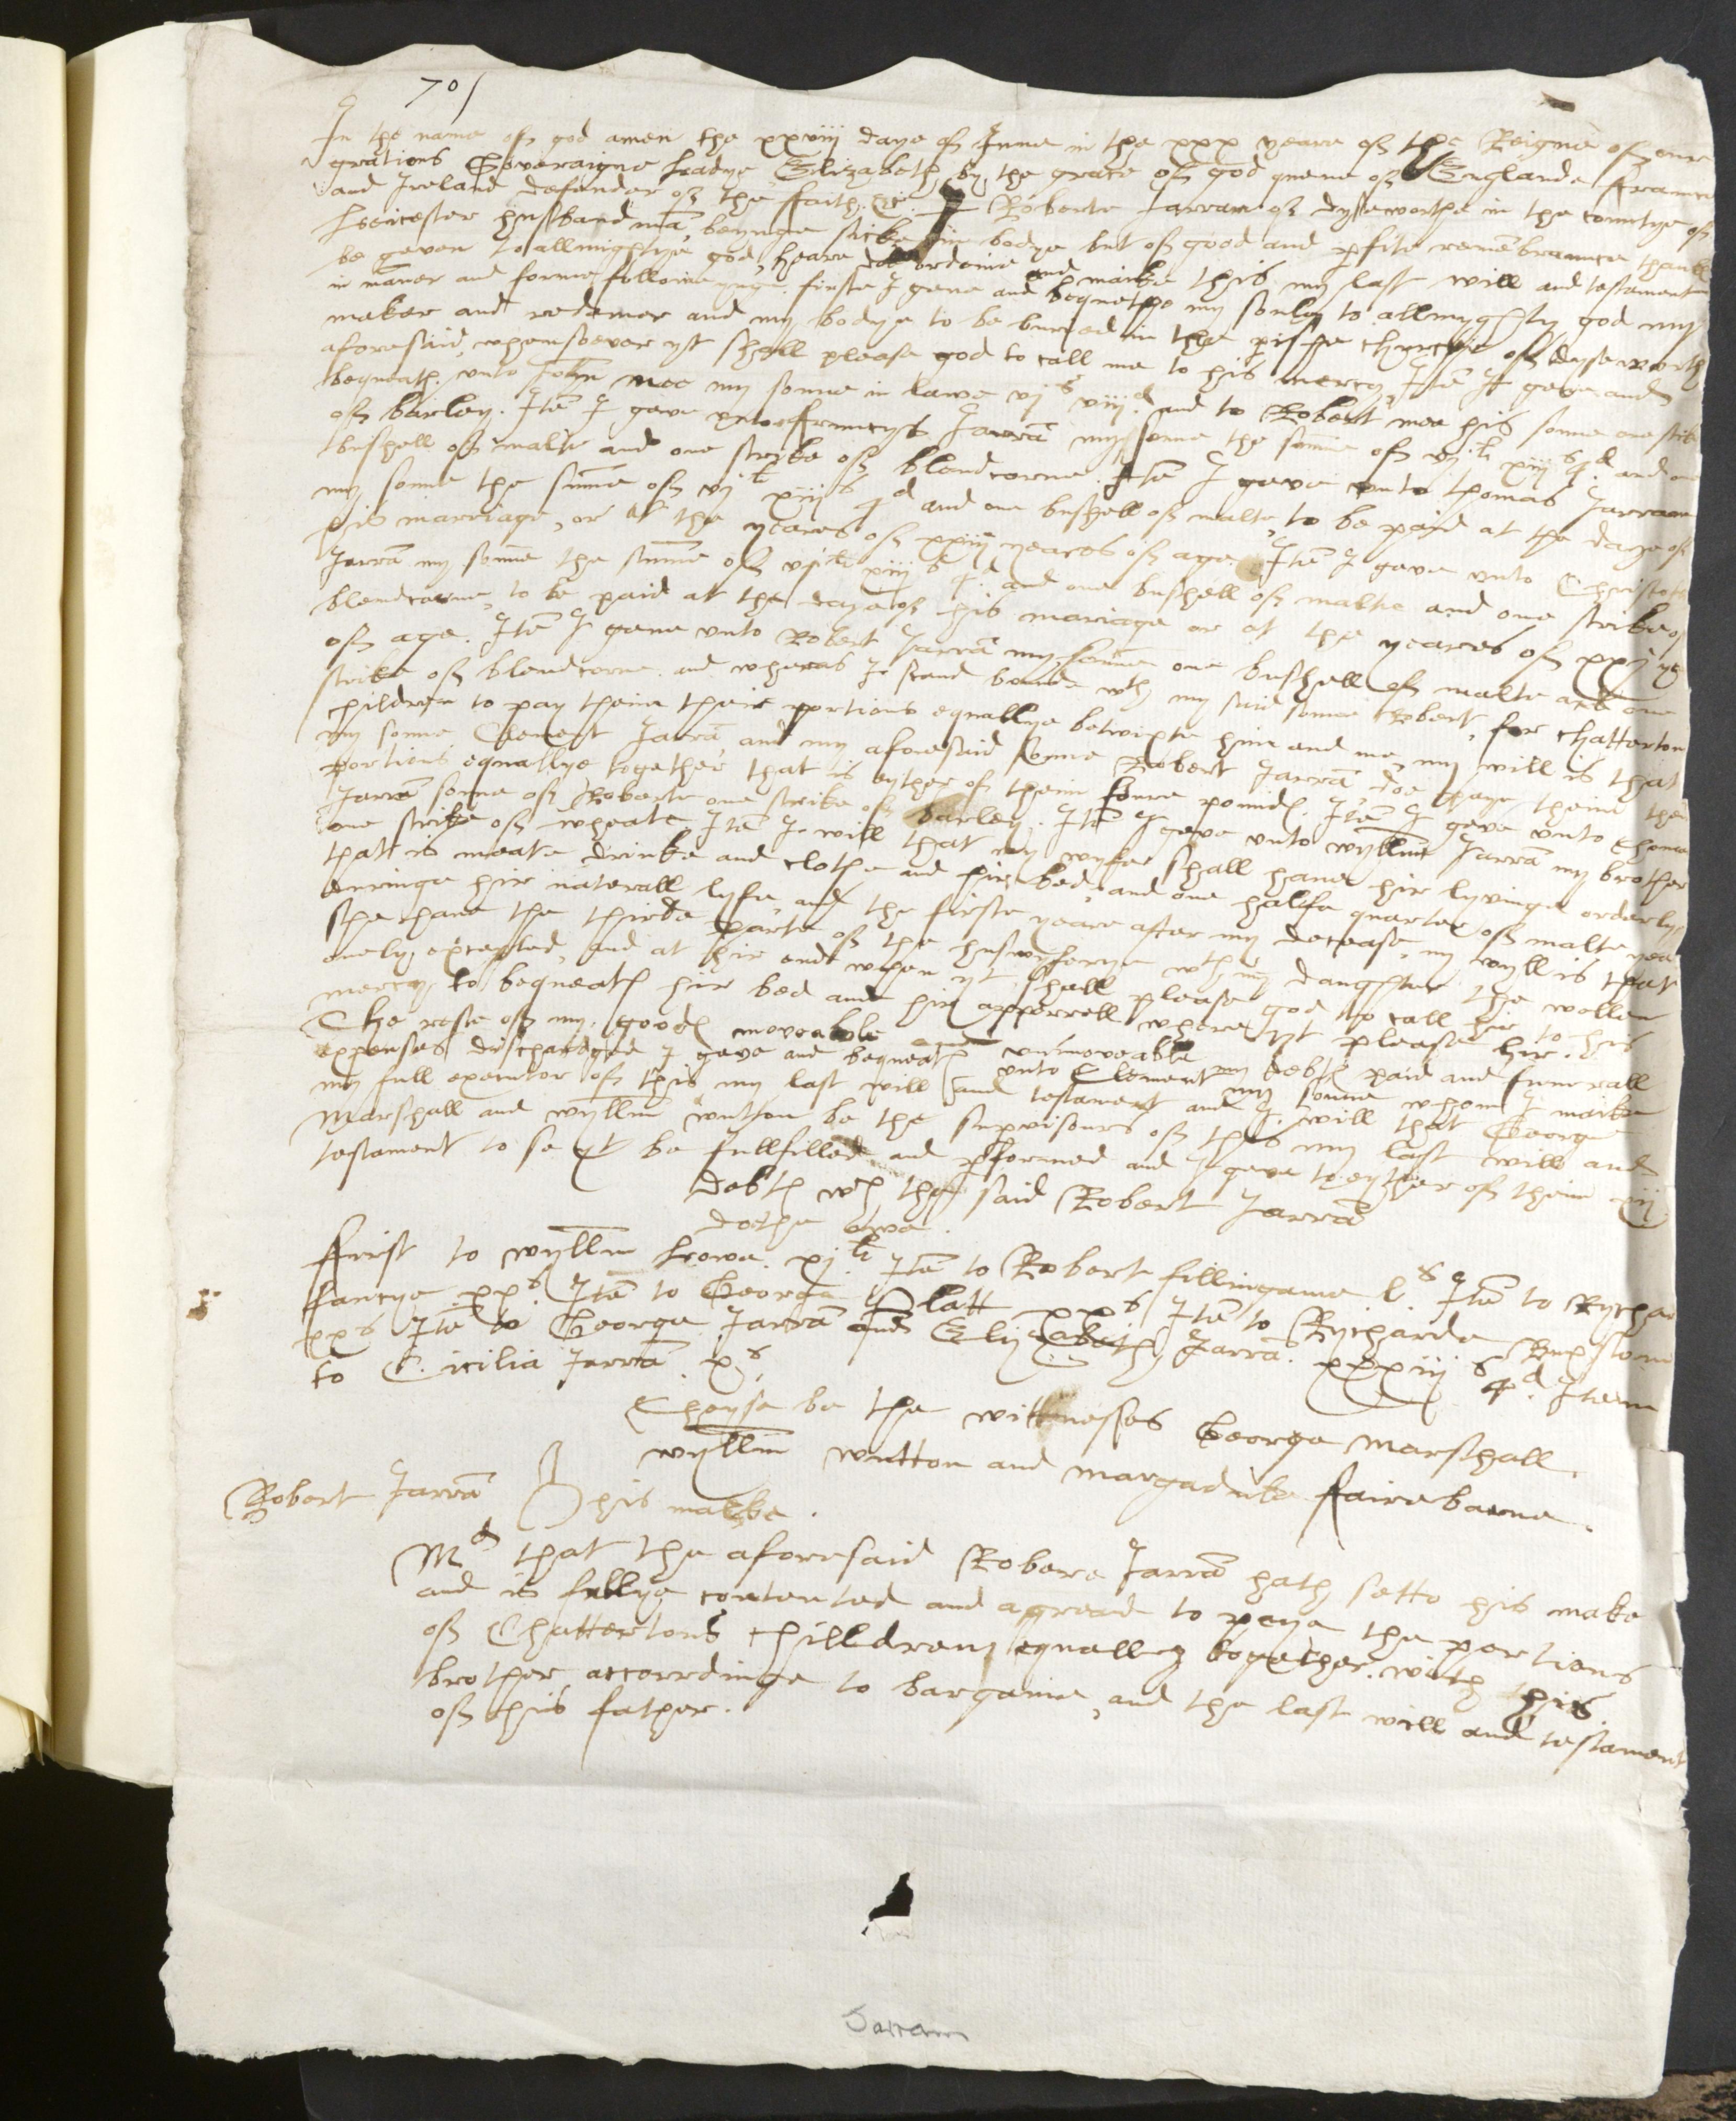 70/
In the name off god amen the xxviij daye of June in the xxx yeare off the Reigne off oure
gratious Soveraigne Ladye Elizabeth by the grace off god quene off Englande ffraunce
and Ireland defender off the ffaith &c. I Roberte Jarram off dyseworthe in the countye off
Leicester husband mā, beynge sicke in bodye but off good and pfite remēbraunce thankes
be geven to allmightye god, heare doe ordeine and maike this my last will and testament
in māner and forme followeynge. firste I geve and bequethe my soule to allmyghty god my
maker and redemer and my bodye to be buried in the pishe churche off dyseworth
aforesaid, whensoever yt shall please god to call me to his mercy, Itē I geve and
bequeath unto John mee my sonne in lawe vjs viijd and to Robert mee his sonne one strike
off barley. Itē I geve unto ffrauncys Jarrā my sonne the sōme off vjli xiijs 4d. and one
bushell off malte and one strike off blendcorne. Itē I geve unto thomas Jarram
my sonne the sūme off vjli xiijs 4d and one bushell off malte, to be paid at the daye off
his marriage, or at the yeares off xxiij yeares off age. Itē I geve unto Christofer
Jarrā my sonne the sūme off vjli xiijs 4d. and one bushell off malte and one strike off
blendcorne, to be paid at the daye off his mariage or at the yeares off xxij ye
off age. Itē I geve unto Robert Jarrā my sonne one bushell off malte and one
strike off blendcorne. and wheras I stand bounde wth my said sonne Robert, for chatterton
children to pay theim their portions equallye betwixte him and me, my will is that
my sonne Clement Jarrā and my aforesaid sonne Robert Jarrā doe paye theim their
portions equallye together, that is eyther off theim foure poundes. Itē I geve unto thomas
Jarrā sonne off Roberte one strike off barley. Itē I geve unto wyllm Jarrā my brother
one strike off wheate, Itē I will that my wyfe shall have hir lyvinge orderly
that is meate drinke and clothe and hir bed, and one halfe quarter off malte yea
duringe hir naterall lyfe, and the firste yeare after my decease, my wyll is that
she have the thirde parte off the huswyferye wth my daughter, the wollen
onely excepted, and at hir ende when yt shall please god to call hir to his
mercy, to bequeath hir bed and hir apperrell where yt please hir.
The reste off my goodes moveable and unmoveable my debtes paid and funerall
expenses discharged I geve and bequeath unto Clement my sonne whom I maike
my full executor off this my last will and testament and I will that George
Marshall and wyllm wutton be the supvisours off this my last will and
testament to se yt be fullfilled and pformed and I geve to eyther off theim xij
Debtes wch the said Robert Jarrā
dothe owe.
ffirst to wyllm Lowe. xjli Itē to Robert fillingame ls. Itē to Rychar
ffancye xxs. Itē to George Platt xxs Itē to Rycharde Bugstone
xxs Itē to George Jarrā and Elyzabeth Jarrā. xxxiijs 4d. Item
to C. icilia Jarrā. xs.
Theyse be the wittnesses George Marshall.
wyllm wutton and margaduke ffairebarne.
Robert Jarrā his marke.
Md that the aforesaid Robert Jarrā hath sette his make
and is fullye contented and agreed to paye the portions
off Chattertons chilldren equally together. with his
brother accorrdinge to bargaine, and the last will and testament
off his father.
Jarram